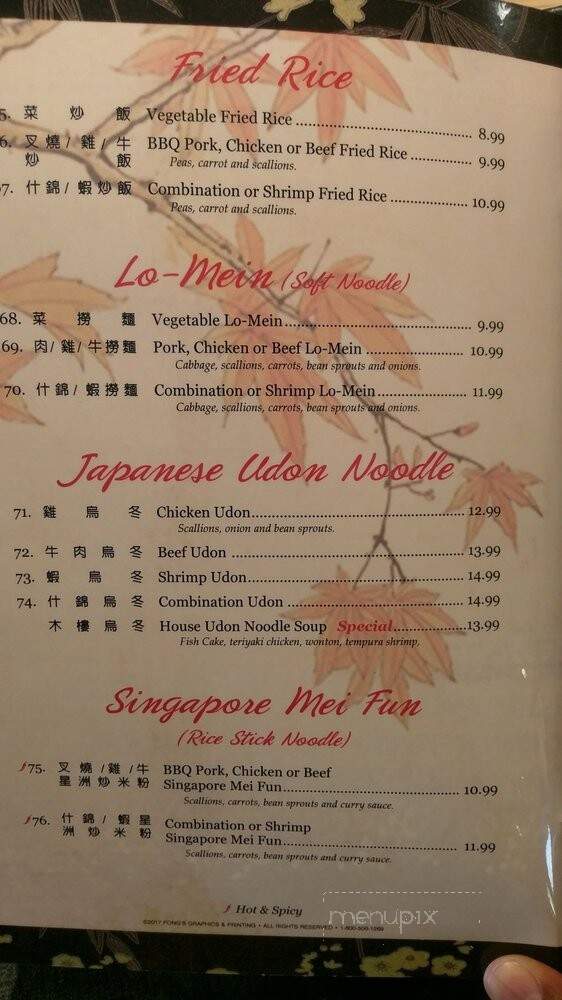 Fried Rice
5. 菜 炒 飯 Vegetable Fried Rice 8.99
6. 叉燒/雞/牛 BBQ Pork, Chicken or Beef Fried Rice 9.99
炒 飯 Peas, carrot and scallions.
67. 什錦/蝦炒飯 Combination or Shrimp Fried Rice 10.99
Peas, carrot and scallions.
Lo-Mein (Soft Noodle)
68. 菜 撈 麵 Vegetable Lo-Mein 9.99
69. 肉/雞/牛撈麵 Pork, Chicken or Beef Lo-Mein 10.99
Cabbage, scallions, carrots, bean sprouts and onions.
70. 什錦/蝦撈麵 Combination or Shrimp Lo-Mein 11.99
Cabbage, scallions, carrots, bean sprouts and onions.
Japanese Udon Noodle
71. 雞 烏 冬 Chicken Udon 12.99
Scallions, onion and bean sprouts.
72. 牛肉烏冬 Beef Udon 13.99
73. 蝦 烏 冬 Shrimp Udon 14.99
74. 什錦烏冬 Combination Udon 14.99
木樓烏冬 House Udon Noodle Soup Special 13.99
Fish Cake, teriyaki chicken, wonton, tempura shrimp.
Singapore Mei Fun
(Rice Stick Noodle)
75. 叉燒/雞/牛 BBQ Pork, Chicken or Beef
星洲炒米粉 Singapore Mei Fun 10.99
Scallions, carrots, bean sprouts and curry sauce.
76. 什錦/蝦星 Combination or Shrimp
洲炒米粉 Singapore Mei Fun 11.99
Scallions, carrots, bean sprouts and curry sauce.
Hot & Spicy
©2017 FONG'S GRAPHICS & PRINTING • ALL RIGHTS RESERVED • 1-800-500-1269
menupix